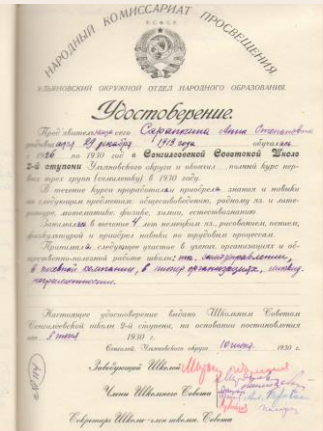 НАРОДНЫЙ КОМИССАРИАТ ПРОСВЕЩЕНИЯ
Р.С.Ф.С.Р.
УЛЬЯНОВСКИЙ ОКРУЖНОЙ ОТДЕЛ НАРОДНОГО ОБРАЗОВАНИЯ
Удостоверение.
Пред'явитель сего Сарапкина Анна Степановна
29 декабря 1913 года обучалась
с 1926 по 1930 год в Сенгилеевской Советской Школе
2-й ступени Ульяновского округа и окончил полный курс
групп (семилетку) в 1930 году.
В течение курса проработал и приобрел знания и навыки
по следующим предметам: обществоведению, родному яз. и ли-
тературе, математике, физике, химии, естествознанию.
Занималась в течение 4 лет немецким яз., рисованием, пением,
физкультурой и приобрел навыки по трудовым процессам.
Принимала следующее участие в ученич. организациях и об-
щественно-полезной работе школы: самоуправлении,
в посевной кампании, в пионер организациях, ликвид.
неграмотности.
Настоящее удостоверение выдано Школьным Советом
Сенгилеевской школы 2-й ступени, на основании постановления
от 8 июня 1930 г.
Сенгилей, Ульяновского округа 10 июня 1930 г.
Заведующий Школой
Члены Школьного Совета
Секретарь Школы-член школьн. Совета